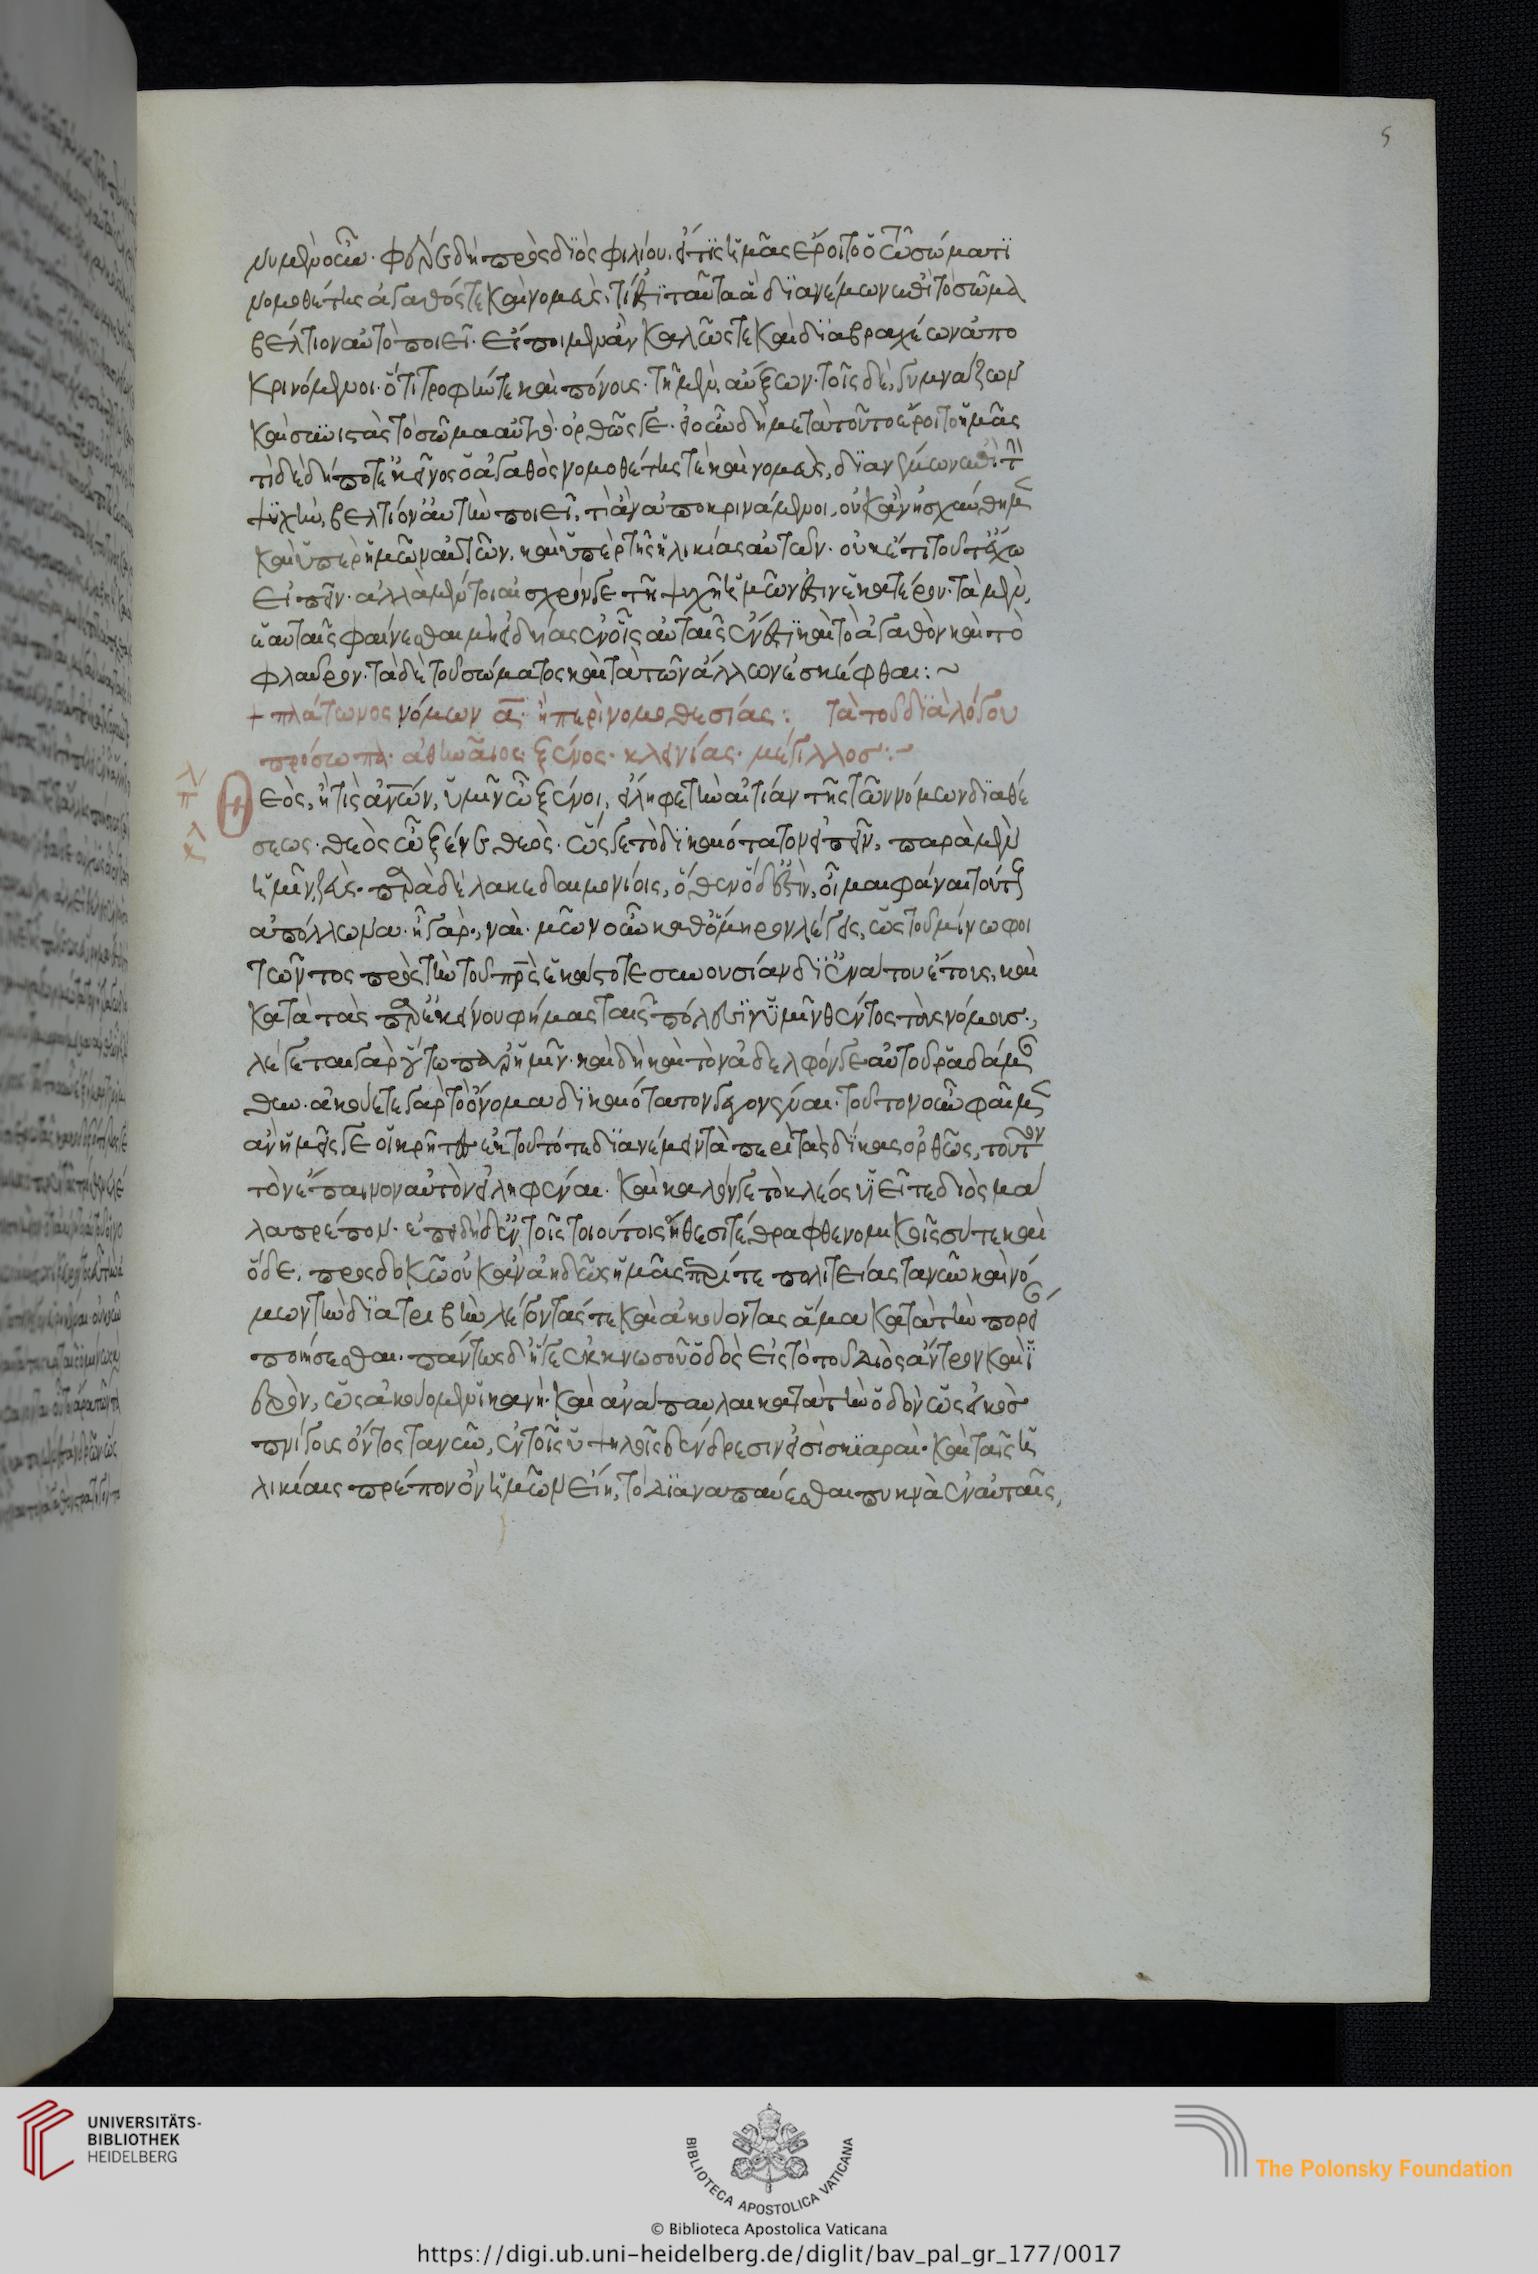 5
νυμενοσοῦν. φράζε δὴ πρὸς διὸς φιλίου. εἴ τις ἡμᾶς ἔροιτο ὁ τῷ σώματι
νομοθέτης ἀγαθός τε καὶ νομεὺς. τί ἐστι ταῦτα ἃ διανέμων ἐπὶ τὸ σῶμα
βέλτιον αὐτὸ ποιεῖ. εἴποιμεν ἂν καλῶς τε καὶ διὰ βραχέων ἀπο
κρινόμενοι. ὅτι τροφήν τε καὶ πόνους. τῇ μὲν, αὔξων. τοῖς δὲ, γυμνάζων
καὶ συνιστὰς τὸ σῶμα αὐτό. ὀρθῶς γε. εἰ οὖν δὴ μετὰ τοῦτο ἔροιτο ἡμᾶς
τί δὲ δή ποτε ἐκεῖνος ὁ ἀγαθὸς νομοθέτης τε καὶ νομεὺς, διανέμων ἐπὶ τὴν
ψυχὴν, βελτίον αὐτὴν ποιεῖ, τί ἂν ἀποκρινάμενοι, οὐκ ἂν αἰσχυνθεῖμεν
καὶ ὑπὲρ ἡμῶν αὐτῶν, καὶ ὑπὲρ τῆς ἡλικίας αὐτῶν. οὐκέτι τοῦτ' ἔχω
εἰπεῖν. ἀλλὰ μέντοι αἰσχρόν γε τῇ ψυχῇ ἡμῶν ἐστιν ἑκατέρου. τὰ μὲν,
ἐν αὐταῖς φαίνεσθαι μὴ εἰδυίας ἐν οἷς αὐταῖς ἔνεστι καὶ τὸ ἀγαθὸν καὶ τὸ
φλαῦρον. τὰ δὲ τοῦ σώματος καὶ τὰ τῶν ἄλλων ἐσκέφθαι:~
+ πλάτωνος νόμων α. ἢ περὶ νομοθεσίας: τὰ τοῦ διαλόγου
πρόσωπα. ἀθηναῖος ξένος. κλεινίας. μέγιλλος:~
Θεὸς, ἤ τις ἀνων, ὑμῖν ὦ ξένοι, εἴληφε τὴν αἰτίαν τῆς τῶν νόμων διαθέ
σεως. θεὸς ὦ ξένε θεὸς. ὥς γε τὸ δικαιότατον εἰπεῖν, παρὰ μὲν
ἡμῖν, ζεύς. παρὰ δὲ λακεδαιμονίοις, ὅθεν ὅδ' ἐστὶν, οἶμαι φάναι τούτους
ἀπόλλωνα. ἦ γάρ, ναί. μῶν οὖν καθ' ὅμηρον λέγεις, ὡς τοῦ μίνω φοι
τῶντος πρὸς τὴν τοῦ πρς ἑκάστοτε συνουσίαν δι' ἐνάτου ἔτους, καὶ
κατὰ τὰς παρ' ἐκείνου φήμας ταῖς πόλεσιν ὑμῖν θέντος τοὺς νόμους.,
λέγεται γὰρ οὕτω παρ' ἡμῖν. καὶ δὴ καὶ τὸν ἀδελφόν γε αὐτοῦ ῥαδάμαν
θυν. ἀκούετε γὰρ τὸ ὄνομα δικαιότατον γεγονέναι. τοῦτον οὖν φαῖμεν
ἂν ἡμεῖς γε οἱ κρῆτες ἐκ τοῦ τότε διανέμειν τὰ περὶ τὰς δίκας ὀρθῶς, τοῦτον
τὸν ἔπαινον αὐτὸν εἰληφέναι. καὶ καλόν γε τὸ κλέος υἱεῖ τε διὸς μά
λα πρέπον. ἐπειδὴ δὲ ἐν τοῖς τοιούτοις ἤθεσι τέθραφθε νομικοῖς σύ τε καὶ
ὅδε, προσδοκῶ οὐκ ἂν ἀηδῶς ἡμᾶς περί τε πολιτείας τανῦν καὶ νό
μων τὴν διατριβὴν λέγοντάς τε καὶ ἀκούοντας ἅμα κατὰ τὴν πορεί
ποιήσεσθαι. πάντως δ' ἥ γε ἐκ κνωσοῦ ὁδὸς εἰς τὸ τοῦ διὸς ἄντρον καὶ ἱ
ερὸν, ὡς ἀκούομεν ἱκανή. καὶ ἀνάπαυλαι κατὰ τὴν ὁδὸν ὡς εἰκὸς
πνίγους ὄντος τανῦν, ἐν τοῖς ὑψηλοῖς δένδρεσιν εἰσὶ σκιαραί. καὶ ταῖς ἡ
λικίαις πρέπον ἂν ἡμῶν εἴη, τὸ διαναπαύεσθαι πυκνὰ ἐν αὐταῖς,
UNIVERSITÄTS-
BIBLIOTHEK
HEIDELBERG
BIBLIOTECA APOSTOLICA VATICANA
The Polonsky Foundation
© Biblioteca Apostolica Vaticana
https://digi.ub.uni-heidelberg.de/diglit/bav_pal_gr_177/0017